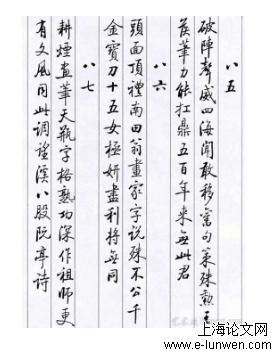 八五
破陣聲威四海聞敢移舊句策殊勳王
侯筆力能扛鼎五百年来無此君
八六
頭面頂禮南田翁畫家字說殊不公千
金寶刀十五女極妍盡利將無同
八七
耕煙畫筆天瓶字格熟功深作祖師更
有文風同此調望溪八股阮亭詩
上海论文网
www.e-lunwen.com